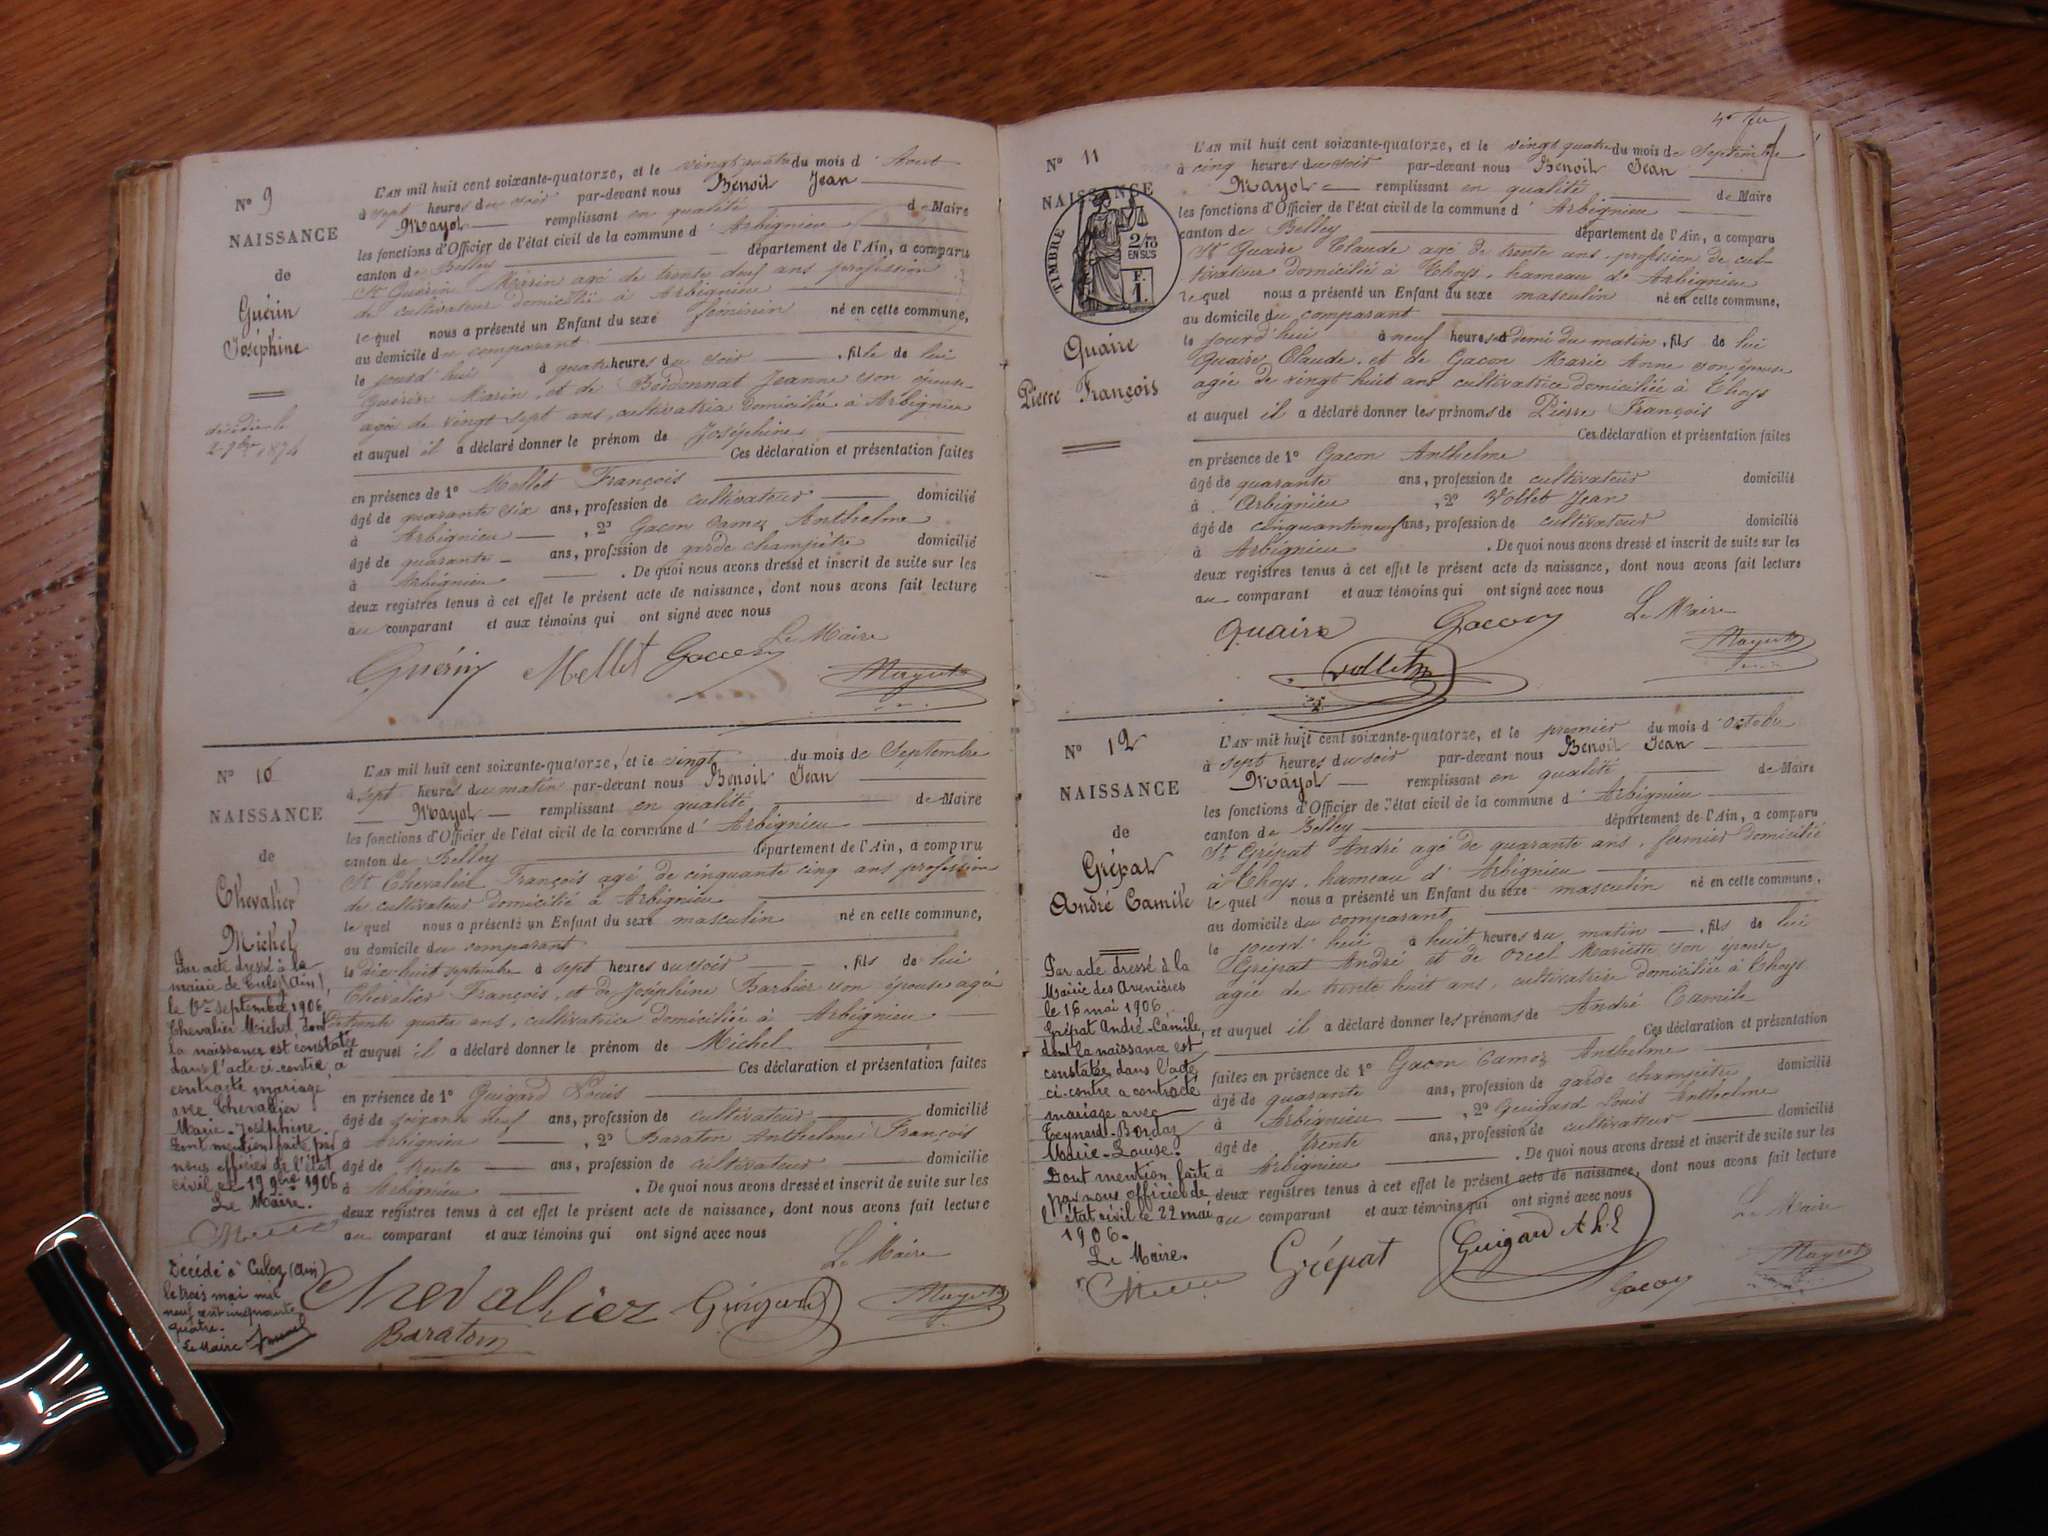 N° 9
NAISSANCE
de
Guérin
Joséphine
décédée le
1874
L'AN mil huit cent soixante-quatorze, et le vingt quatre du mois d'Aout
à sept heures du soir par-devant nous Benoit Jean
Mayot remplissant en qualité de Maire
les fonctions d'Officier de l'état civil de la commune d'Arbignieu
canton de Belley département de l'Ain, a comparu
Sr Guérin Marin agé de trente neuf ans profession
de cultivateur domicilié à Arbignieu
lequel nous a présenté un Enfant du sexe féminin né en cette commune,
au domicile du comparant
le jourd'hui à quatre heures du soir, fille de lui
Guérin Marin, et de Jeanne son épouse
agée de vingt sept ans, cultivatrice domiciliée à Arbignieu
et auquel il a déclaré donner le prénom de Joséphine
Ces déclaration et présentation faites
en présence de 1° Mellet François
âgé de quarante six ans, profession de cultivateur domicilié
à Arbignieu, 2° Gacon Camoz Anthelme
âgé de quarante ans, profession de garde champêtre domicilié
à Arbignieu. De quoi nous avons dressé et inscrit de suite sur les
deux registres tenus à cet effet le présent acte de naissance, dont nous avons fait lecture
au comparant et aux témoins qui ont signé avec nous
Le Maire
Guérin Mellet Gacon Mayot
N° 10
NAISSANCE
de
Chevalier
Michel
Par acte dressé à la
mairie de Culoz (Ain),
le septembre 1906,
Chevalier Michel, dont
la naissance est constatée
dans l'acte ci-contre, a
contracté mariage
avec Chevalier
Marie-Joséphine.
Dont mention faite par
nous officier de l'état
civil le 19 9bre 1906
Le Maire.
Décédé à Culoz (Ain)
le trois mai mil
neuf cent cinquante
quatre.
Le Maire
L'AN mil huit cent soixante-quatorze, et le vingt du mois de Septembre
à sept heures du matin par-devant nous Benoit Jean
Mayot remplissant en qualité de Maire
les fonctions d'Officier de l'état civil de la commune d'Arbignieu
canton de Belley département de l'Ain, a comparu
Sr Chevalier François agé de cinquante cinq ans profession
de cultivateur domicilié à Arbignieu
lequel nous a présenté un Enfant du sexe masculin né en cette commune,
au domicile du comparant
le dix huit septembre à sept heures du soir, fils de lui
Chevalier François, et de Joséphine Barbier son épouse agée
trente quatre ans, cultivatrice domiciliée à Arbignieu
et auquel il a déclaré donner le prénom de Michel
Ces déclaration et présentation faites
en présence de 1° Guigard Louis
âgé de soixante neuf ans, profession de cultivateur domicilié
à Arbignieu, 2° Baraton Anthelme François
âgé de trente ans, profession de cultivateur domicilié
à Arbignieu. De quoi nous avons dressé et inscrit de suite sur les
deux registres tenus à cet effet le présent acte de naissance, dont nous avons fait lecture
au comparant et aux témoins qui ont signé avec nous
Le Maire
Chevallier Guigard Mayot
Baraton
N° 11
NAISSANCE
TIMBRE
2/10
EN SUS
F.
1.
Quaire
Pierre François
L'AN mil huit cent soixante-quatorze, et le vingt quatre du mois de Septembre
à cinq heures du soir par-devant nous Benoit Jean
Mayot remplissant en qualité de Maire
les fonctions d'Officier de l'état civil de la commune d'Arbignieu
canton de Belley département de l'Ain, a comparu
Sr Quaire Claude agé de trente ans, profession de cul-
tivateur domicilié à Thoys, hameau d'Arbignieu
lequel nous a présenté un Enfant du sexe masculin né en cette commune,
au domicile du comparant
le jourd'hui à neuf heures et demi du matin, fils de lui
Quaire, Claude, et de Gacon Marie Anne son épouse
agée de vingt huit ans cultivatrice domiciliée à Thoys
et auquel il a déclaré donner les prénoms de Pierre François
Ces déclaration et présentation faites
en présence de 1° Gacon Anthelme
âgé de quarante ans, profession de cultivateur domicilié
à Arbignieu, 2° Vollet Jean
âgé de cinquante neuf ans, profession de cultivateur domicilié
à Arbignieu. De quoi nous avons dressé et inscrit de suite sur les
deux registres tenus à cet effet le présent acte de naissance, dont nous avons fait lecture
au comparant et aux témoins qui ont signé avec nous
Le Maire
Quaire Gacon Mayot
Vollet
N° 12
NAISSANCE
de
Grépat
André Camile
Par acte dressé à la
Mairie des Avenières
le 16 mai 1906,
Grépat André-Camile,
dont la naissance est
constatée dans l'acte
ci-contre a contracté
mariage avec
Teynard-Bordaz
Marie-Louise.
Dont mention faite
par nous officier de
l'état civil le 22 mai
1906.
Le Maire.
L'AN mil huit cent soixante-quatorze, et le premier du mois d'octobre
à sept heures du soir par-devant nous Benoit Jean
Mayot remplissant en qualité de Maire
les fonctions d'Officier de l'état civil de la commune d'Arbignieu
canton de Belley département de l'Ain, a comparu
Sr Grépat André agé de quarante ans, fermier domicilié
à Thoys, hameau d'Arbignieu
lequel nous a présenté un Enfant du sexe masculin né en cette commune,
au domicile du comparant
le jourd'hui à huit heures du matin, fils de lui
Grépat André et de Orcel Mariette son épouse
agée de trente huit ans, cultivatrice domiciliée à Thoys
et auquel il a déclaré donner les prénoms de André Camile
Ces déclaration et présentation
faites en présence de 1° Gacon Camoz Anthelme
âgé de quarante ans, profession de garde champêtre domicilié
à Arbignieu, 2° Guigard Louis Anthelme
âgé de trente ans, profession de cultivateur domicilié
à Arbignieu. De quoi nous avons dressé et inscrit de suite sur les
deux registres tenus à cet effet le présent acte de naissance, dont nous avons fait lecture
au comparant et aux témoins qui ont signé avec nous
Le Maire
Grépat Guigard Gacon Mayot